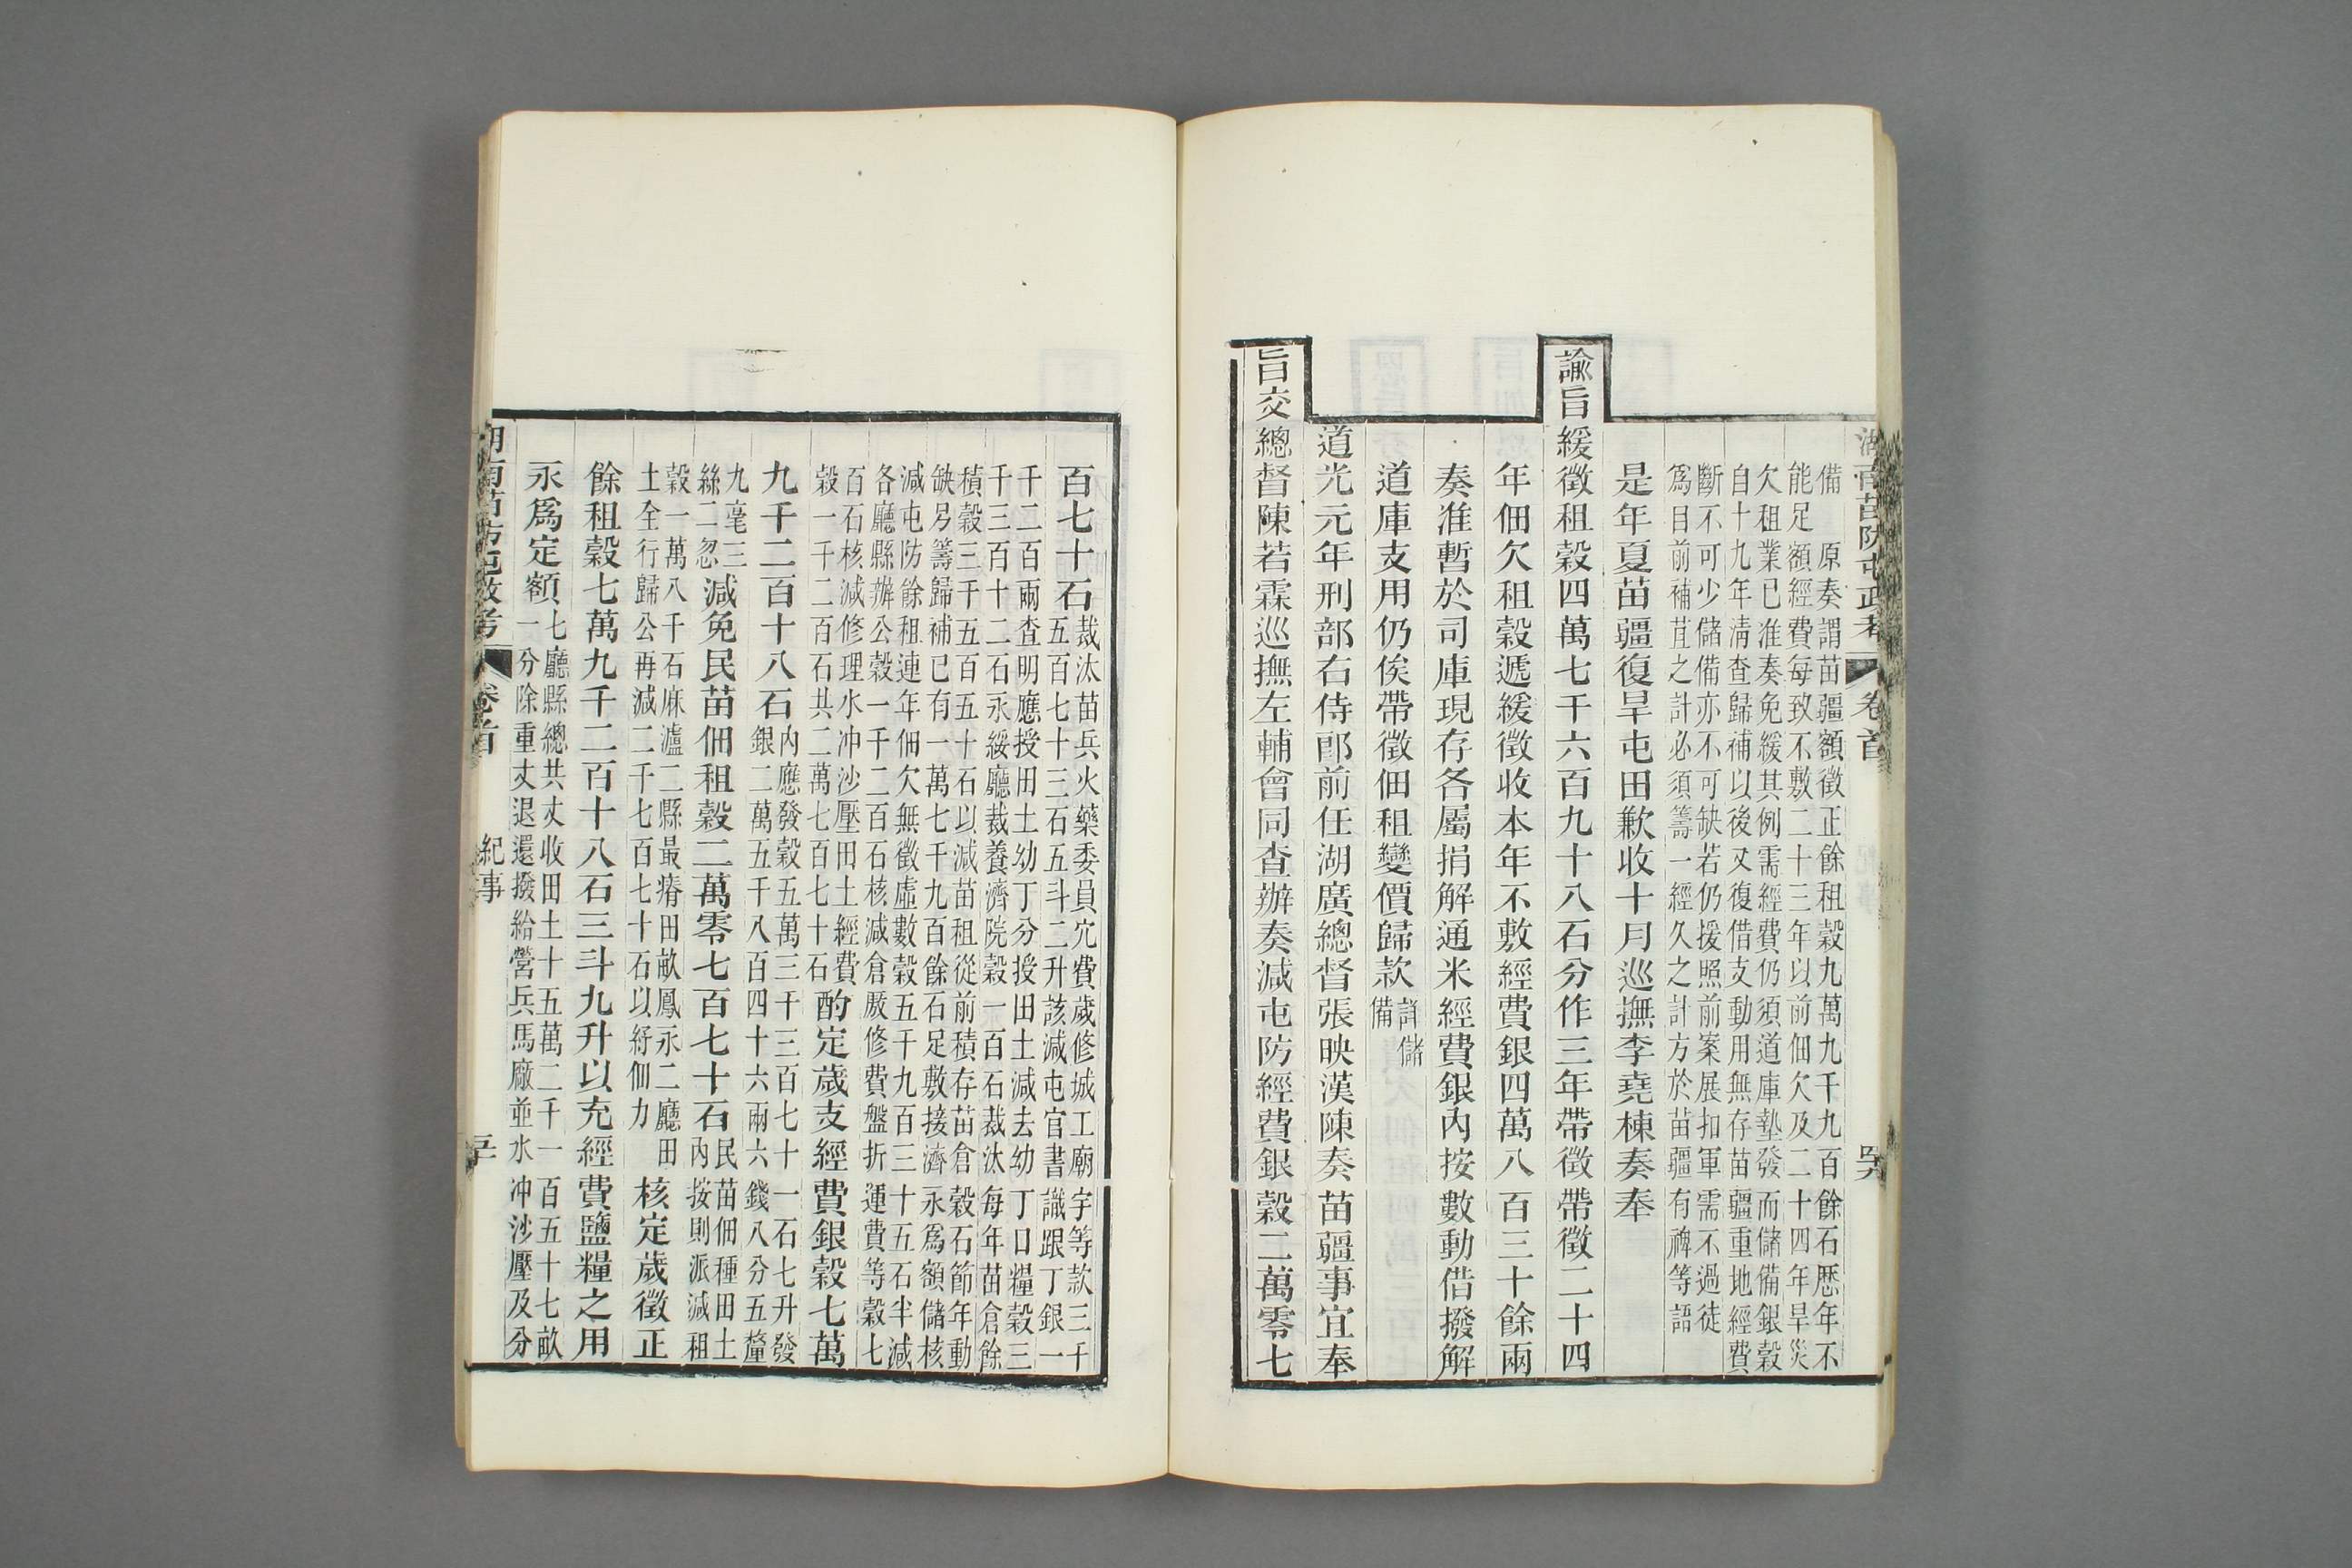 湖南苗防屯政考
卷首
備　原奏謂苗疆額徵正餘租穀九萬九千九百餘石歷年不
能足額經費每致不敷二十三年以前佃欠及二十四年旱災
欠租業已准奏免緩其例需經費仍須道庫墊發而儲備銀穀
自十九年清查歸補以後又復借支動用無存苗疆重地經費
斷不可少儲備亦不可缺若仍援照前案展扣軍需不過徒
爲目前補苴之計必須籌一經久之計方於苗疆有裨等語
是年夏苗疆復旱屯田歉收十月巡撫李堯棟奏奉
諭旨緩徵租穀四萬七千六百九十八石分作三年帶徵帶徵二十四
年佃欠租穀遞緩徵收本年不敷經費銀四萬八百三十餘兩
奏准暫於司庫現存各屬捐解通米經費銀內按數動借撥解
道庫支用仍俟帶徵佃租變價歸款詳儲
備
道光元年刑部右侍郎前任湖廣總督張映漢陳奏苗疆事宜奉
旨交總督陳若霖巡撫左輔會同查辦奏減屯防經費銀穀二萬零七
百七十石裁汰苗兵火藥委員冗費歲修城工廟宇等款三千
五百七十三石五斗二升該減屯官書識跟丁銀一
千二百兩查明應授田土幼丁分授田土減去幼丁口糧穀三
千三百十二石永綏廳裁養濟院穀一百石裁汰每年苗倉餘
積穀三千五百五十石以減苗租從前積存苗倉穀石節年動
缺另籌歸補已有一萬七千九百餘石足敷接濟永爲額儲核
減屯防餘租連年佃欠無徵虛數穀五千九百三十五石半減
各廳縣辦公穀一千二百石核減倉厫修費盤折運費等穀七
百石核減修理水沖沙壓田土經費
穀一千二百石共二萬七百七十石酌定歲支經費銀穀七萬
九千二百十八石內應發穀五萬三千三百七十一石七升發
銀二萬五千八百四十六兩六錢八分五釐
九毫三
絲二忽減免民苗佃租穀二萬零七百七十石民苗佃種田土
內按則派減租
穀一萬八千石麻瀘二縣最瘠田畝鳳永二廳田
土全行歸公再減二千七百七十石以紓佃力核定歲徵正
餘租穀七萬九千二百十八石三斗九升以充經費鹽糧之用
永爲定額七廳縣總共丈收田土十五萬二千一百五十七畝
一分除重丈退還撥給營兵馬廠並水沖沙壓及分
湖南苗防屯政考
卷首
紀事